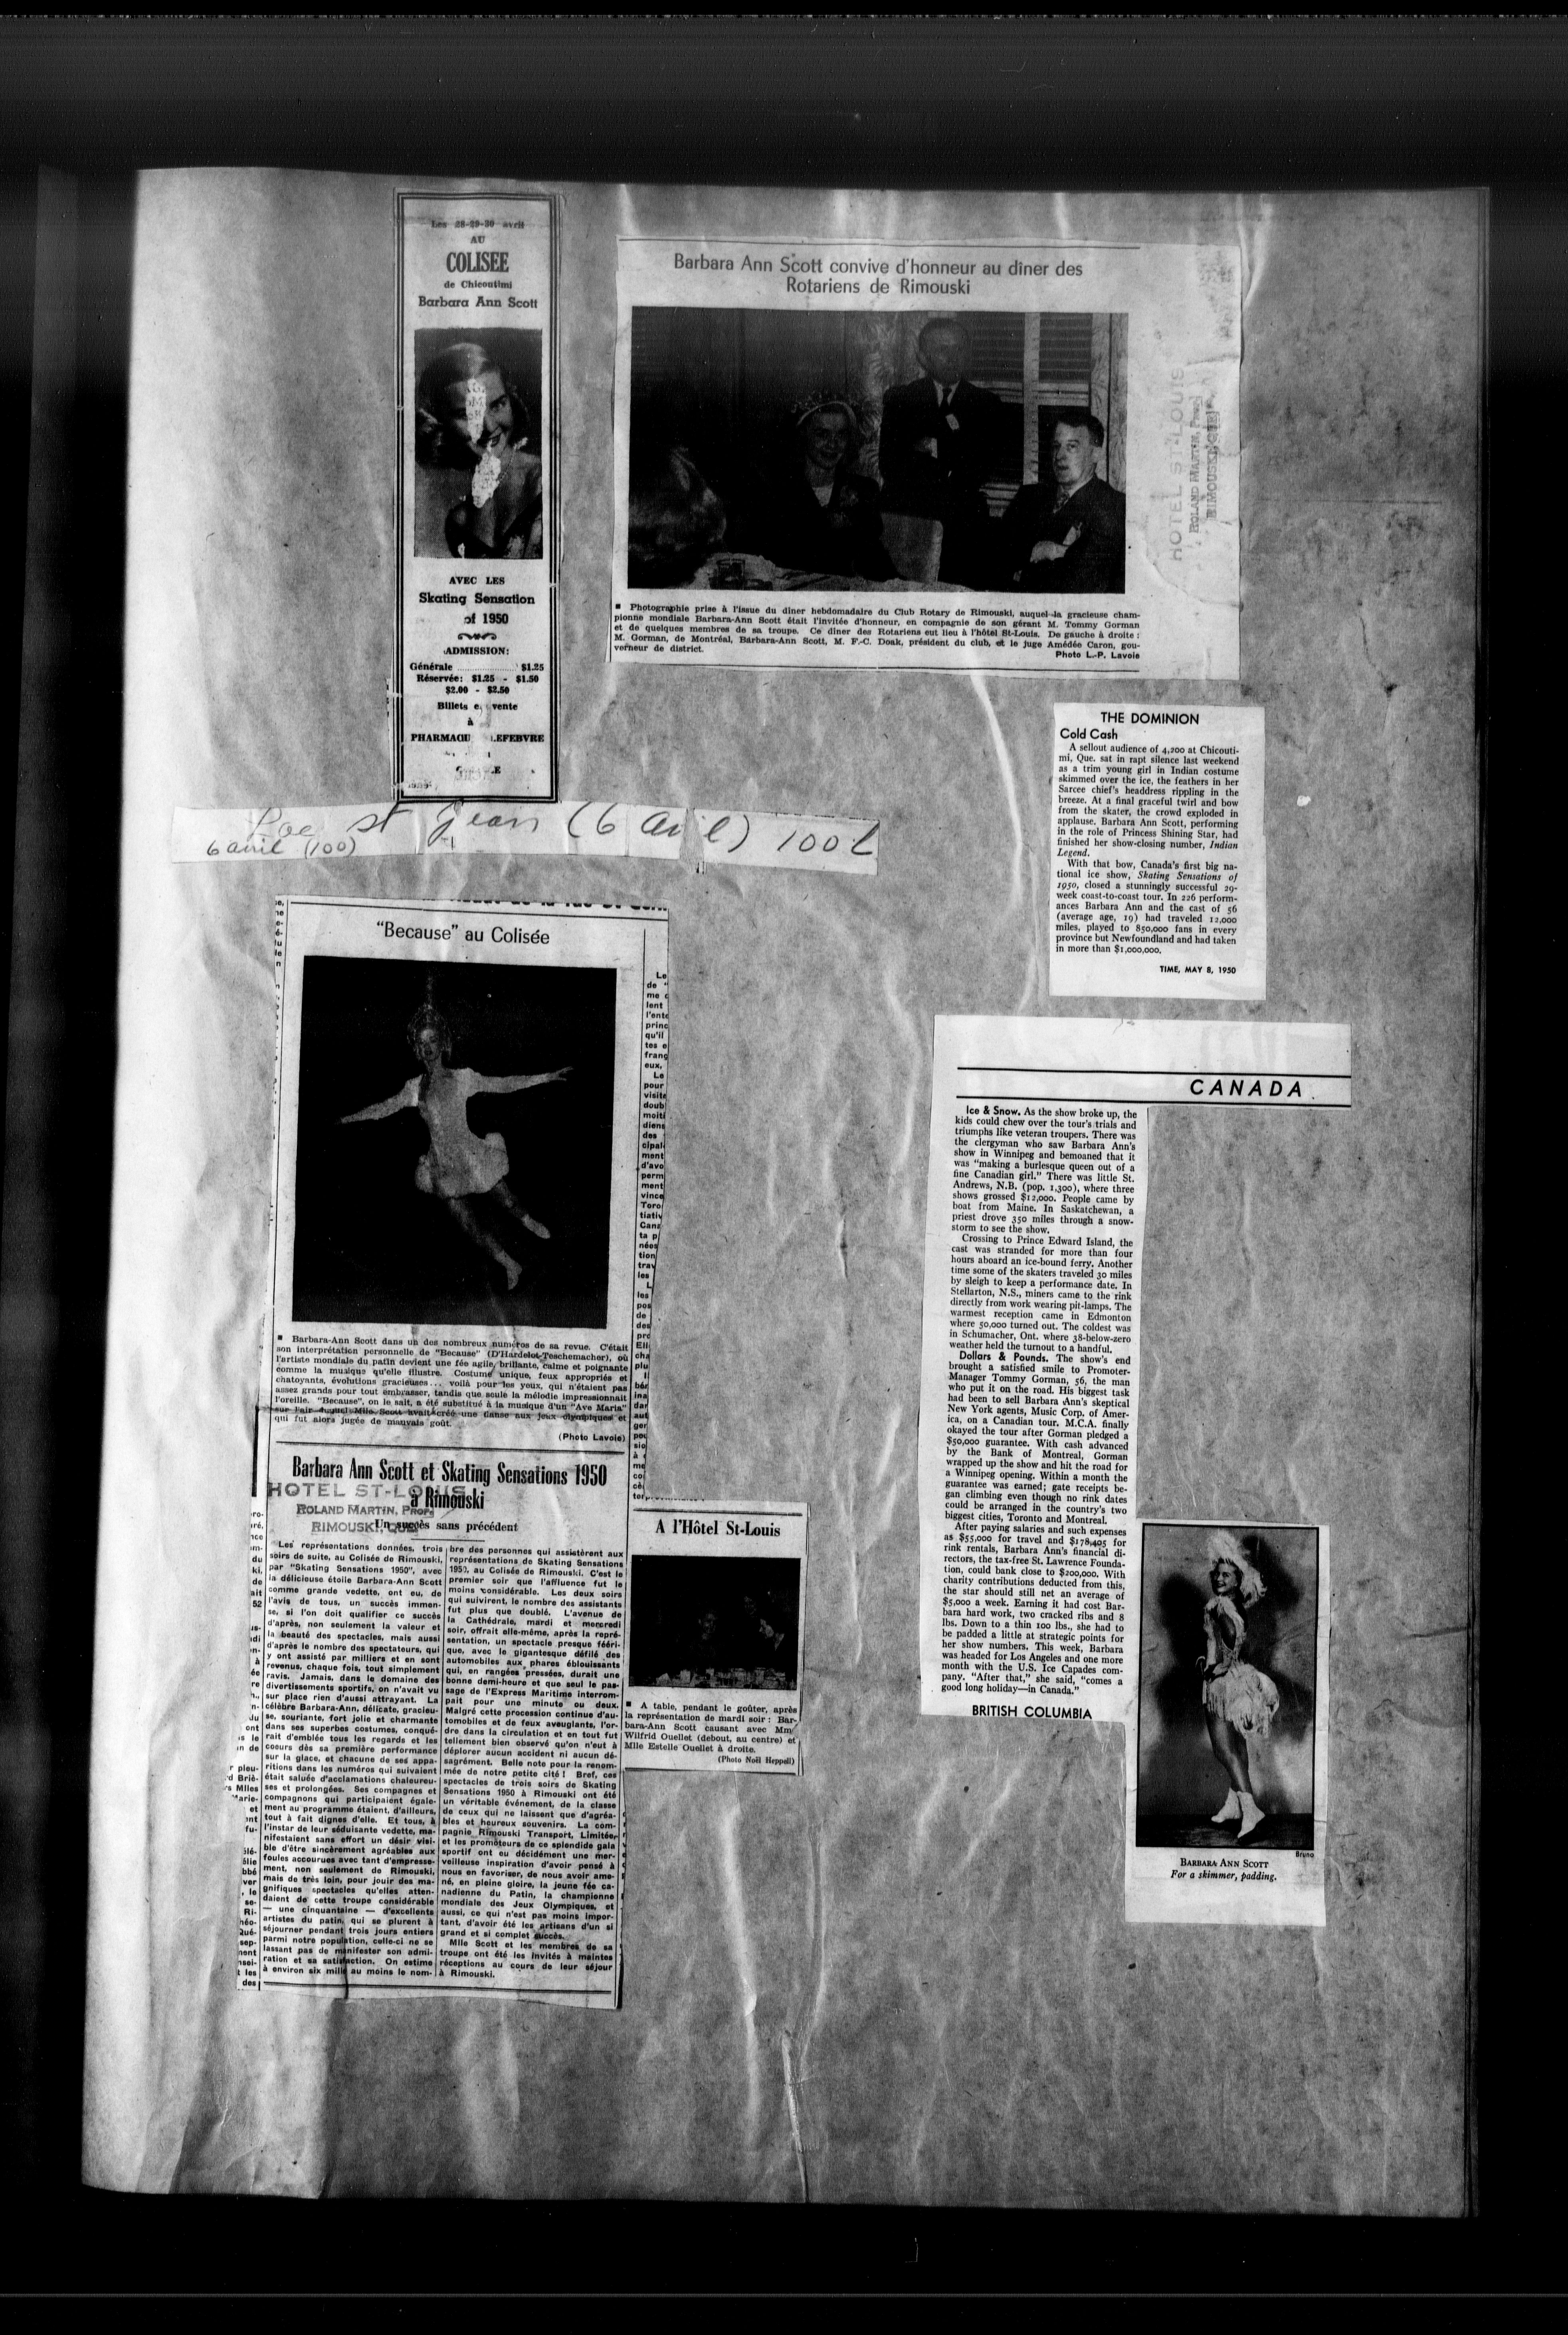 Les 28-29-30 avril
AU
COLISEE
de Chicoutimi
Barbara Ann Scott
AVEC LES
Skating Sensation
of 1950
ADMISSION:
Générale $1.25
Réservée: $1.25 - $1.50
$2.00 - $2.50
Billets e vente
à
PHARMA LEFEBVRE
Barbara Ann Scott convive d'honneur au dîner des
Rotariens de Rimouski
HOTEL ST-LOUIS
ROLAND MARTIN, Prop.
RIMOUSKI, QUE.
■ Photographie prise à l'issue du dîner hebdomadaire du Club Rotary de Rimouski, auquel la gracieuse cham-
pionne mondiale Barbara-Ann Scott était l'invitée d'honneur, en compagnie de son gérant M. Tommy Gorman
et de quelques membres de sa troupe. Ce dîner des Rotariens eut lieu à l'hôtel St-Louis. De gauche à droite :
M. Gorman, de Montréal, Barbara-Ann Scott, M. F.-C. Doak, président du club, et le juge Amédée Caron, gou-
verneur de district.
Photo L.-P. Lavoie
THE DOMINION
Cold Cash
A sellout audience of 4,200 at Chicouti-
mi, Que. sat in rapt silence last weekend
as a trim young girl in Indian costume
skimmed over the ice, the feathers in her
Sarcee chief's headdress rippling in the
breeze. At a final graceful twirl and bow
from the skater, the crowd exploded in
applause. Barbara Ann Scott, performing
in the role of Princess Shining Star, had
finished her show-closing number, Indian
Legend.
With that bow, Canada's first big na-
tional ice show, Skating Sensations of
1950, closed a stunningly successful 29-
week coast-to-coast tour. In 226 perform-
ances Barbara Ann and the cast of 56
(average age, 19) had traveled 12,000
miles, played to 850,000 fans in every
province but Newfoundland and had taken
in more than $1,000,000.
TIME, MAY 8, 1950
st Jean (6 avril) 100
6 avril (100)
"Because" au Colisée
■ Barbara-Ann Scott dans un des nombreux numéros de sa revue. C'était
son interprétation personnelle de "Because" (D'Hardelot-Teschemacher), où
l'artiste mondiale du patin devient une fée agile, brillante, calme et poignante
comme la musique qu'elle illustre. Costume unique, feux appropriés et
chatoyants, évolutions gracieuses... voilà pour les yeux, qui n'étaient pas
assez grands pour tout embrasser, tandis que seule la mélodie impressionnait
l'oreille. "Because", on le sait, a été substitué à la musique d'un "Ave Maria"
sur l'air duquel Mlle Scott avait créé une danse aux jeux olympiques et
qui fut alors jugée de mauvais goût.
(Photo Lavoie)
Barbara Ann Scott et Skating Sensations 1950
à Rimouski
HOTEL ST-LOUIS
ROLAND MARTIN, Prop.
RIMOUSKI, QUE.
Un succès sans précédent
Les représentations données, trois
soirs de suite, au Colisée de Rimouski,
par "Skating Sensations 1950", avec
la délicieuse étoile Barbara-Ann Scott
comme grande vedette, ont eu, de
l'avis de tous, un succès immen-
se, si l'on doit qualifier ce succès
d'après, non seulement la valeur et
la beauté des spectacles, mais aussi
d'après le nombre des spectateurs, qui
y ont assisté par milliers et en sont
revenus, chaque fois, tout simplement
ravis. Jamais, dans le domaine des
divertissements sportifs, on n'avait vu
sur place rien d'aussi attrayant. La
célèbre Barbara-Ann, délicate, gracieu-
se, souriante, fort jolie et charmante
dans ses superbes costumes, conqué-
rait d'emblée tous les regards et les
coeurs dès sa première performance
sur la glace, et chacune de ses appa-
ritions dans les numéros qui suivaient
était saluée d'acclamations chaleureu-
ses et prolongées. Ses compagnes et
compagnons qui participaient égale-
ment au programme étaient, d'ailleurs,
tout à fait dignes d'elle. Et tous, à
l'instar de leur séduisante vedette, ma-
nifestaient sans effort un désir visi-
ble d'être sincèrement agréables aux
foules accourues avec tant d'empresse-
ment, non seulement de Rimouski,
mais de très loin, pour jouir des ma-
gnifiques spectacles qu'elles atten-
daient de cette troupe considérable
— une cinquantaine — d'excellents
artistes du patin, qui se plurent à
séjourner pendant trois jours entiers
parmi notre population, celle-ci ne se
lassant pas de manifester son admi-
ration et sa satisfaction. On estime
à environ six mille au moins le nom-
bre des personnes qui assistèrent aux
représentations de Skating Sensations
1950, au Colisée de Rimouski. C'est le
premier soir que l'affluence fut le
moins considérable. Les deux soirs
qui suivirent, le nombre des assistants
fut plus que doublé. L'avenue de
la Cathédrale, mardi et mercredi
soir, offrait elle-même, après la repré-
sentation, un spectacle presque féeri-
que, avec le gigantesque défilé des
automobiles aux phares éblouissants
qui, en rangées pressées, durait une
bonne demi-heure et que seul le pas-
sage de l'Express Maritime interrom-
pait pour une minute ou deux.
Malgré cette procession continue d'au-
tomobiles et de feux aveuglants, l'or-
dre dans la circulation et en tout fut
tellement bien observé qu'on n'eut à
déplorer aucun accident ni aucun dé-
sagrément. Belle note pour la renom-
mée de notre petite cité ! Bref, ces
spectacles de trois soirs de Skating
Sensations 1950 à Rimouski ont été
un véritable événement, de la classe
de ceux qui ne laissent que d'agréa-
bles et heureux souvenirs. La com-
pagnie Rimouski Transport, Limitée,
et les promoteurs de ce splendide gala
sportif ont eu décidément une mer-
veilleuse inspiration d'avoir pensé à
nous en favoriser, de nous avoir ame-
né, en pleine gloire, la jeune fée ca-
nadienne du Patin, la championne
mondiale des Jeux Olympiques, et
aussi, ce qui n'est pas moins impor-
tant, d'avoir été les artisans d'un si
grand et si complet succès.
Mlle Scott et les membres de sa
troupe ont été les invités à maintes
réceptions au cours de leur séjour
à Rimouski.
A l'Hôtel St-Louis
■ A table, pendant le goûter, après
la représentation de mardi soir : Bar-
bara-Ann Scott causant avec Mm
Wilfrid Ouellet (debout, au centre) et
Mlle Estelle Ouellet à droite.
(Photo Noël Heppell)
CANADA
Ice & Snow. As the show broke up, the
kids could chew over the tour's trials and
triumphs like veteran troupers. There was
the clergyman who saw Barbara Ann's
show in Winnipeg and bemoaned that it
was "making a burlesque queen out of a
fine Canadian girl." There was little St.
Andrews, N.B. (pop. 1,300), where three
shows grossed $12,000. People came by
boat from Maine. In Saskatchewan, a
priest drove 350 miles through a snow-
storm to see the show.
Crossing to Prince Edward Island, the
cast was stranded for more than four
hours aboard an ice-bound ferry. Another
time some of the skaters traveled 30 miles
by sleigh to keep a performance date. In
Stellarton, N.S., miners came to the rink
directly from work wearing pit-lamps. The
warmest reception came in Edmonton
where 50,000 turned out. The coldest was
in Schumacher, Ont. where 38-below-zero
weather held the turnout to a handful.
Dollars & Pounds. The show's end
brought a satisfied smile to Promoter-
Manager Tommy Gorman, 56, the man
who put it on the road. His biggest task
had been to sell Barbara Ann's skeptical
New York agents, Music Corp. of Amer-
ica, on a Canadian tour. M.C.A. finally
okayed the tour after Gorman pledged a
$50,000 guarantee. With cash advanced
by the Bank of Montreal, Gorman
wrapped up the show and hit the road for
a Winnipeg opening. Within a month the
guarantee was earned; gate receipts be-
gan climbing even though no rink dates
could be arranged in the country's two
biggest cities, Toronto and Montreal.
After paying salaries and such expenses
as $55,000 for travel and $178,405 for
rink rentals, Barbara Ann's financial di-
rectors, the tax-free St. Lawrence Founda-
tion, could bank close to $200,000. With
charity contributions deducted from this,
the star should still net an average of
$5,000 a week. Earning it had cost Bar-
bara hard work, two cracked ribs and 8
lbs. Down to a thin 100 lbs., she had to
be padded a little at strategic points for
her show numbers. This week, Barbara
was headed for Los Angeles and one more
month with the U.S. Ice Capades com-
pany. "After that," she said, "comes a
good long holiday—in Canada."
BRITISH COLUMBIA
Bruno
BARBARA ANN SCOTT
For a skimmer, padding.